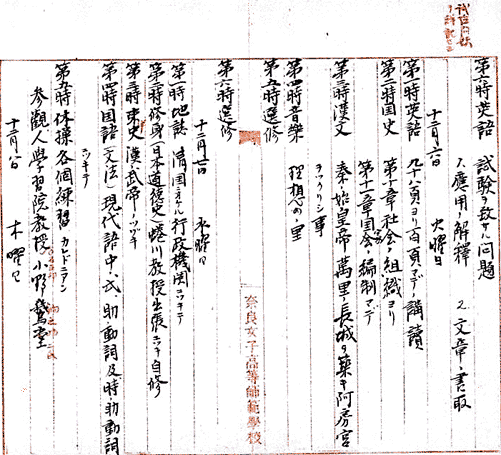 第六時英語 試験ヲ致サル問題
1.應用ノ解釋 2.文章ノ書取
十二月六日 火曜日
第一時英語 九十八頁ヨリ百頁マデノ講讀
第二時国史 第十章社会ノ組織ヨリ
第十一章国会ノ編制マデ
第三時漢文 秦ノ始皇帝ノ萬里ノ長城ヲ築キ阿房宮
ヲツクリシ事
第四時音樂 理想の里
第五時選修
第六時選修
十二月七日 水曜日
第一時地誌 清国ニ於ケル行政機関ニツキテ
第二時修身(日本道徳史)蜷川教授出張ニツキ自修
第三時東史 漢ノ武帝ノツヅキ
第四時国語(文法)現代語中ノ式、助動詞及時助動詞
ニツキテ
第五時体操各個練習
参観人學習院教授 小野鵞堂
十二月八日 木曜日
奈良女子高等師範學校